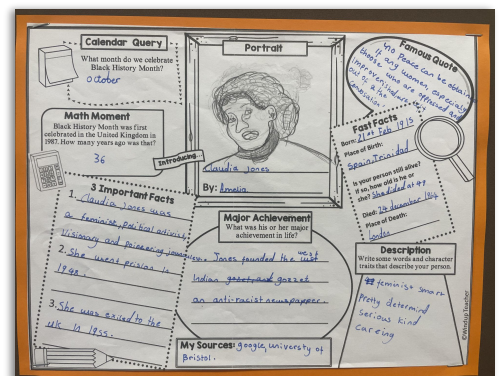 Calendar Query
What month do we celebrate
Black History Month?
October
Math Moment
Black History Month was first
celebrated in the United Kingdom in
1987. How many years ago was that?
36
Portrait
Introducing...
Claudia Jones
By: Amelia
Famous Quote
No Peace can be obtained
if any women, especially
those who are oppressed and
improverished
out of the
Fast Facts
Born: 21st Feb 1915
Place of Birth:
Spain, Trinidad
Is your person still alive?
If so, how old is he or
she? She died at 49
Died: 24 december 1964
Place of Death:
London
3 Important Facts
1. Claudia Jones was
a feminist, Political activist,
visionary and pioneering journalism.
2. She went prision in
1948.
3. She was exiled to the
uk in 1955.
Major Achievement
What was his or her major
achievement in life?
Jones founded the west
Indian gazzet
an anti-racist newspapper.
My Sources: google, university of
Bristol.
Description
Write some words and character
traits that describe your person.
feminist smart
Pretty determind
Serious kind
Careing
©Windup Teacher